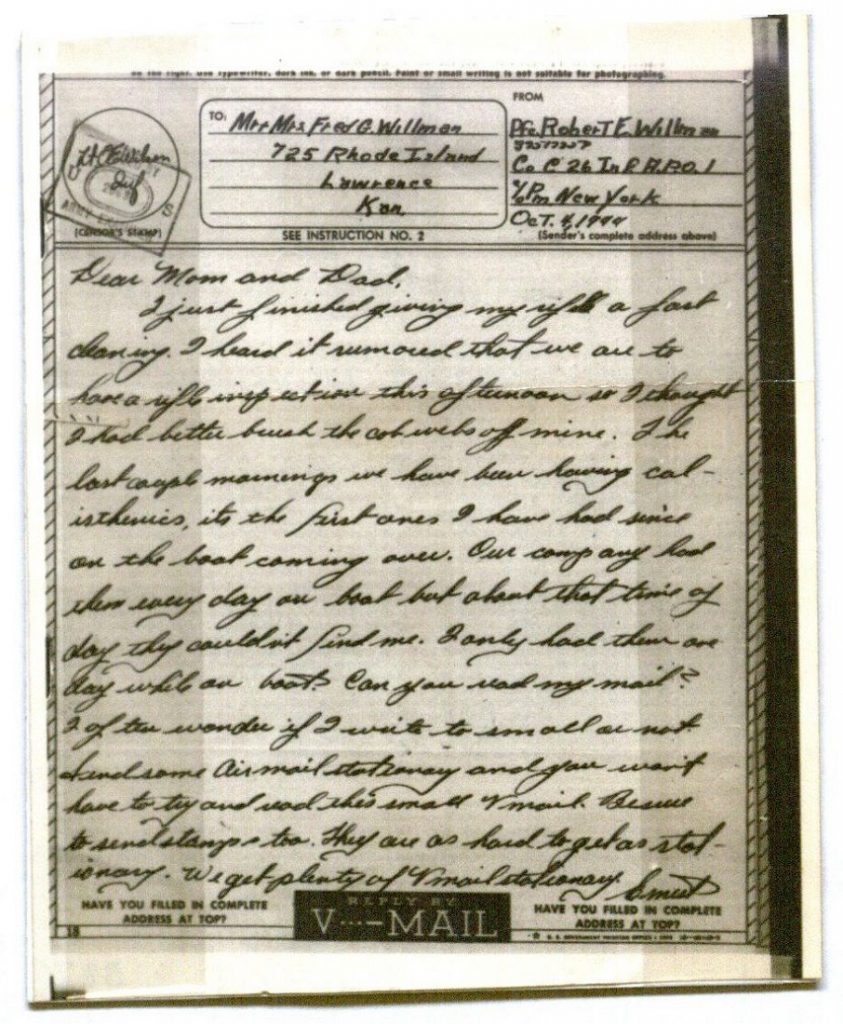 on the right. Use typewriter, dark ink, or dark pencil. Faint or small writing is not suitable for photographing.
TO:
Mr + Mrs Fred G. Willman
725 Rhode Island
Lawrence
Kan
SEE INSTRUCTION NO. 2
FROM
Pfc. Robert E. Willman
Co C 26 Inf. A.P.O. 1
c/o Pm New York
Oct. 4, 1944
(Sender's complete address above)
(CENSOR'S STAMP)
Dear Mom and Dad,
I just finished giving my rifle a fast
cleaning. I heard it rumored that we are to
have a rifle inspection this afternoon so I thought
I had better brush the cob webs off mine. The
last couple mornings we have been having cal-
isthenics, its the first ones I have had since
on the boat coming over. Our company had
them every day on boat but about that time of
day they couldn't find me. I only had them one
day while on boat. Can you read my mail?
I often wonder if I write to small or not
Send some Airmail stationary and you won't
have to try and read this small Vmail. Be sure
to send stamps too. They are as hard to get as stat-
ionary. We get plenty of Vmail stationary.
HAVE YOU FILLED IN COMPLETE
ADDRESS AT TOP?
REPLY BY
V···—MAIL
HAVE YOU FILLED IN COMPLETE
ADDRESS AT TOP?
U. S. GOVERNMENT PRINTING OFFICE